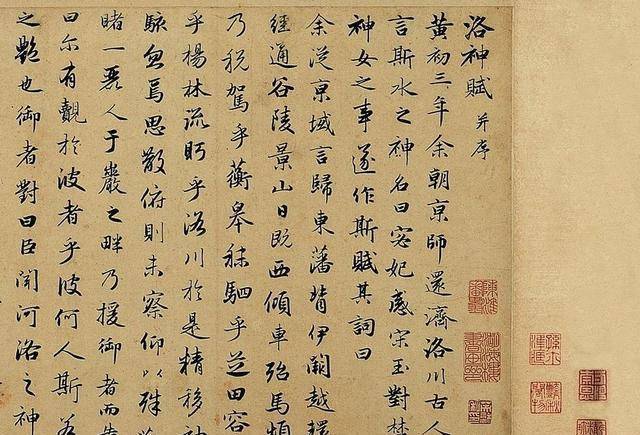 洛神賦 并序
黃初三年余朝京師還濟洛川古人
言斯水之神名曰宓妃感宋玉對楚
神女之事遂作斯賦其詞曰
余從京域言歸東藩背伊闕越轘
經通谷陵景山日既西傾車殆馬煩
乃稅駕乎蘅皋秣駟乎芝田容
乎楊林流眄乎洛川於是精移神
駭忽焉思散俯則未察仰以殊
睹一麗人于巖之畔乃援御者而告
曰尔有覿於彼者乎彼何人斯若
之豔也御者對曰臣聞河洛之神